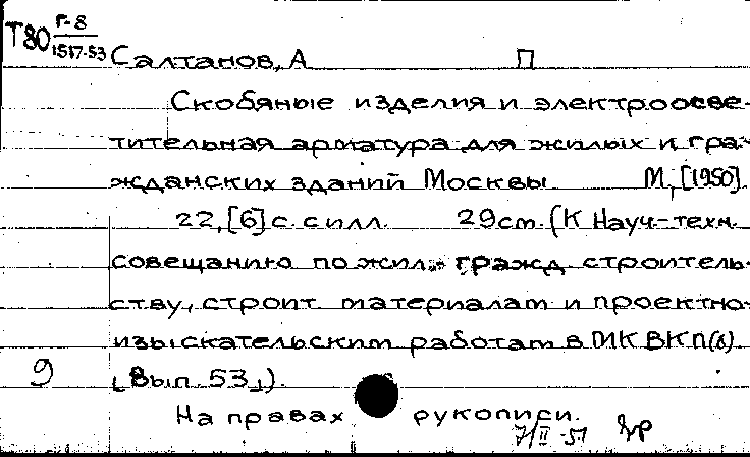 Т80 Г-8
1517-53
Салтанов, А П
Скобяные изделия и электроосве-
тительная арматура для жилых и гра-
жданских зданий Москвы. М., [1950].
22, [6] с. с илл. 29 см. (К Науч.-техн.
совещанию по жил.- гражд. строитель-
ству, строит. материалам и проектно-
изыскательским работам в МК ВКП(б)
9 [Вып. 53]).
На правах рукописи.
7/II-51